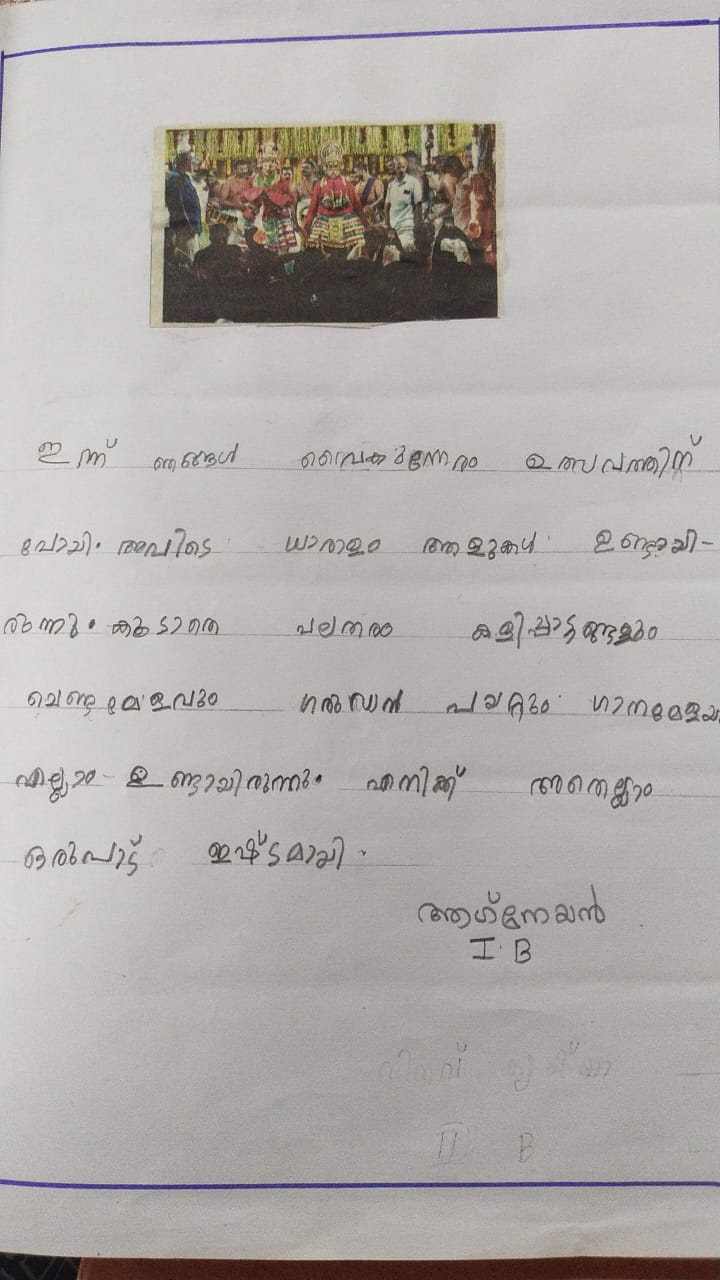 ഇന്ന് ഞങ്ങൾ വൈകുന്നേരം ഉത്സവത്തിന്
പോയി. അവിടെ ധാരാളം ആളുകൾ ഉണ്ടായി-
രുന്നു. കൂടാതെ പലതരം കളിപ്പാട്ടങ്ങളും
ചെണ്ടമേളവും ഗരുഡൻ പയറ്റും ഗാനമേളയു
എല്ലാം ഉണ്ടായിരുന്നു. എനിക്ക് അതെല്ലാം
ഒരുപാട് ഇഷ്ടമായി.
ആഗ്നേയൻ
I. B
II B